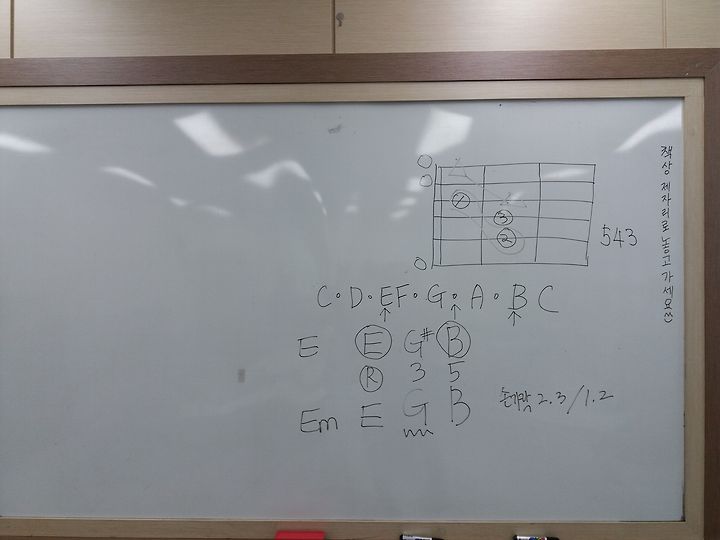 책상 제자리로 놓고 가세요
O
O
1
3
2
543
O
C • D • E F • G • A • B C
E E G# B
R 3 5
Em E G B
손가락 2.3/1.2